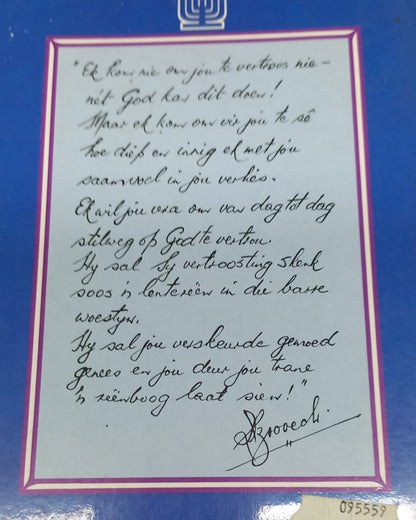 "Ek kom nie om jou te vertroos nie –
nét God kan dit doen!
Maar ek kom om vir jou te sê
hoe diep en innig ek met jou
saamvoel in jou verlies.
Ek wil jou vra om van dag tot dag
stilweg op God te vertrou.
Hy sal Sy vertroosting skenk
soos 'n lentereën in die barre
woestyn.
Hy sal jou verskeurde gemoed
genees en jou deur jou trane
'n reënboog laat sien!"
095559